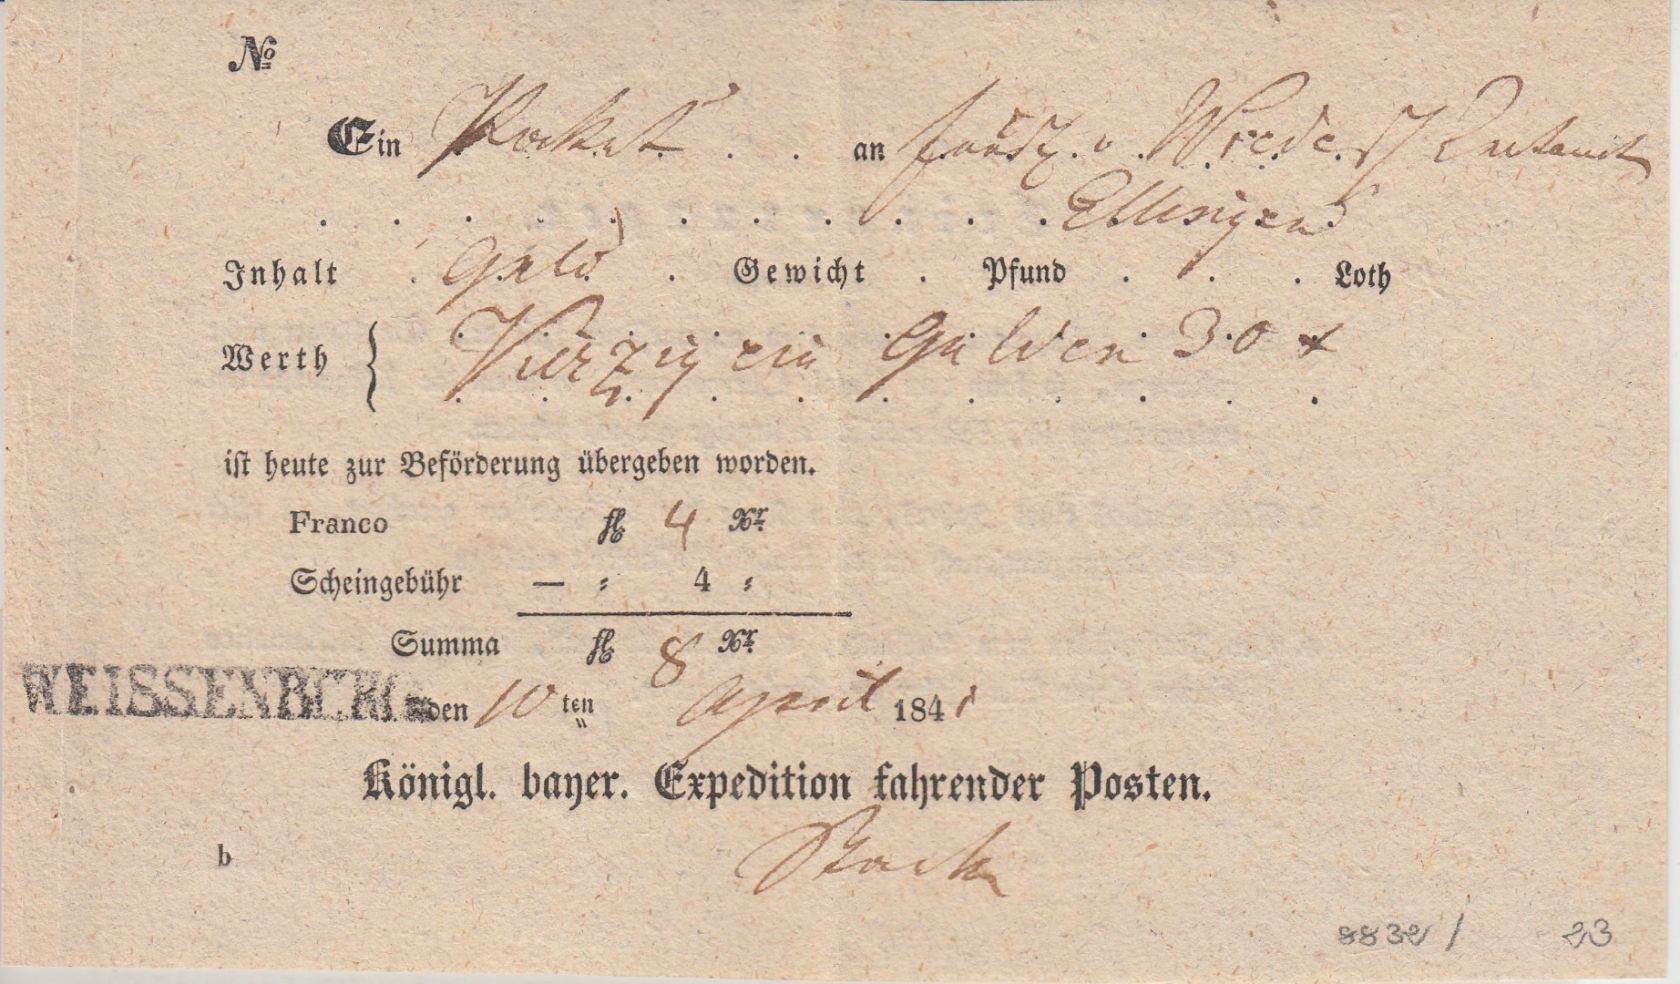 No
Ein Packet an fürstl. v. Wrede Rentamt
Ellingen
Inhalt Geld Gewicht Pfund Loth
Werth { Vierzig ein Gulden 30 x
ist heute zur Beförderung übergeben worden.
Franco fl 4 Xr.
Scheingebühr — : 4 :
Summa fl 8 Xr.
WEISSENBURG den 10ten April 1841
Königl. bayer. Expedition fahrender Posten.
b
8832 / 23